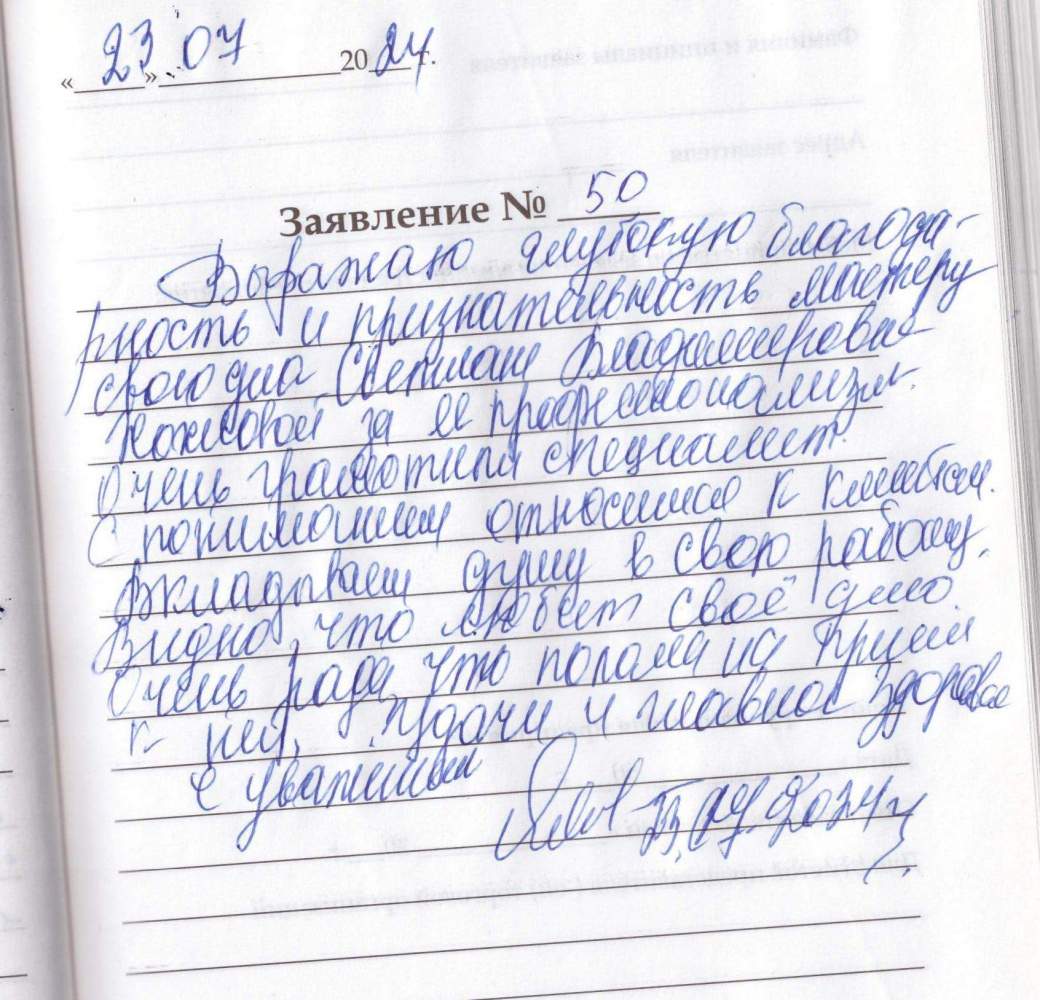 «23» 07 2024 г.
Заявление № 50
Выражаю глубокую благода-
рность и признательность мастеру
своего дела Светлане Владимировне
за её профессионализм.
Очень грамотный специалист.
С пониманием относится к клиентам.
Вкладывает душу в свою работу.
Видно, что любит своё дело.
Очень рада, что попала на приём
к ней. Удачи и главное здоровье
С уважением
23.07.2024 г.